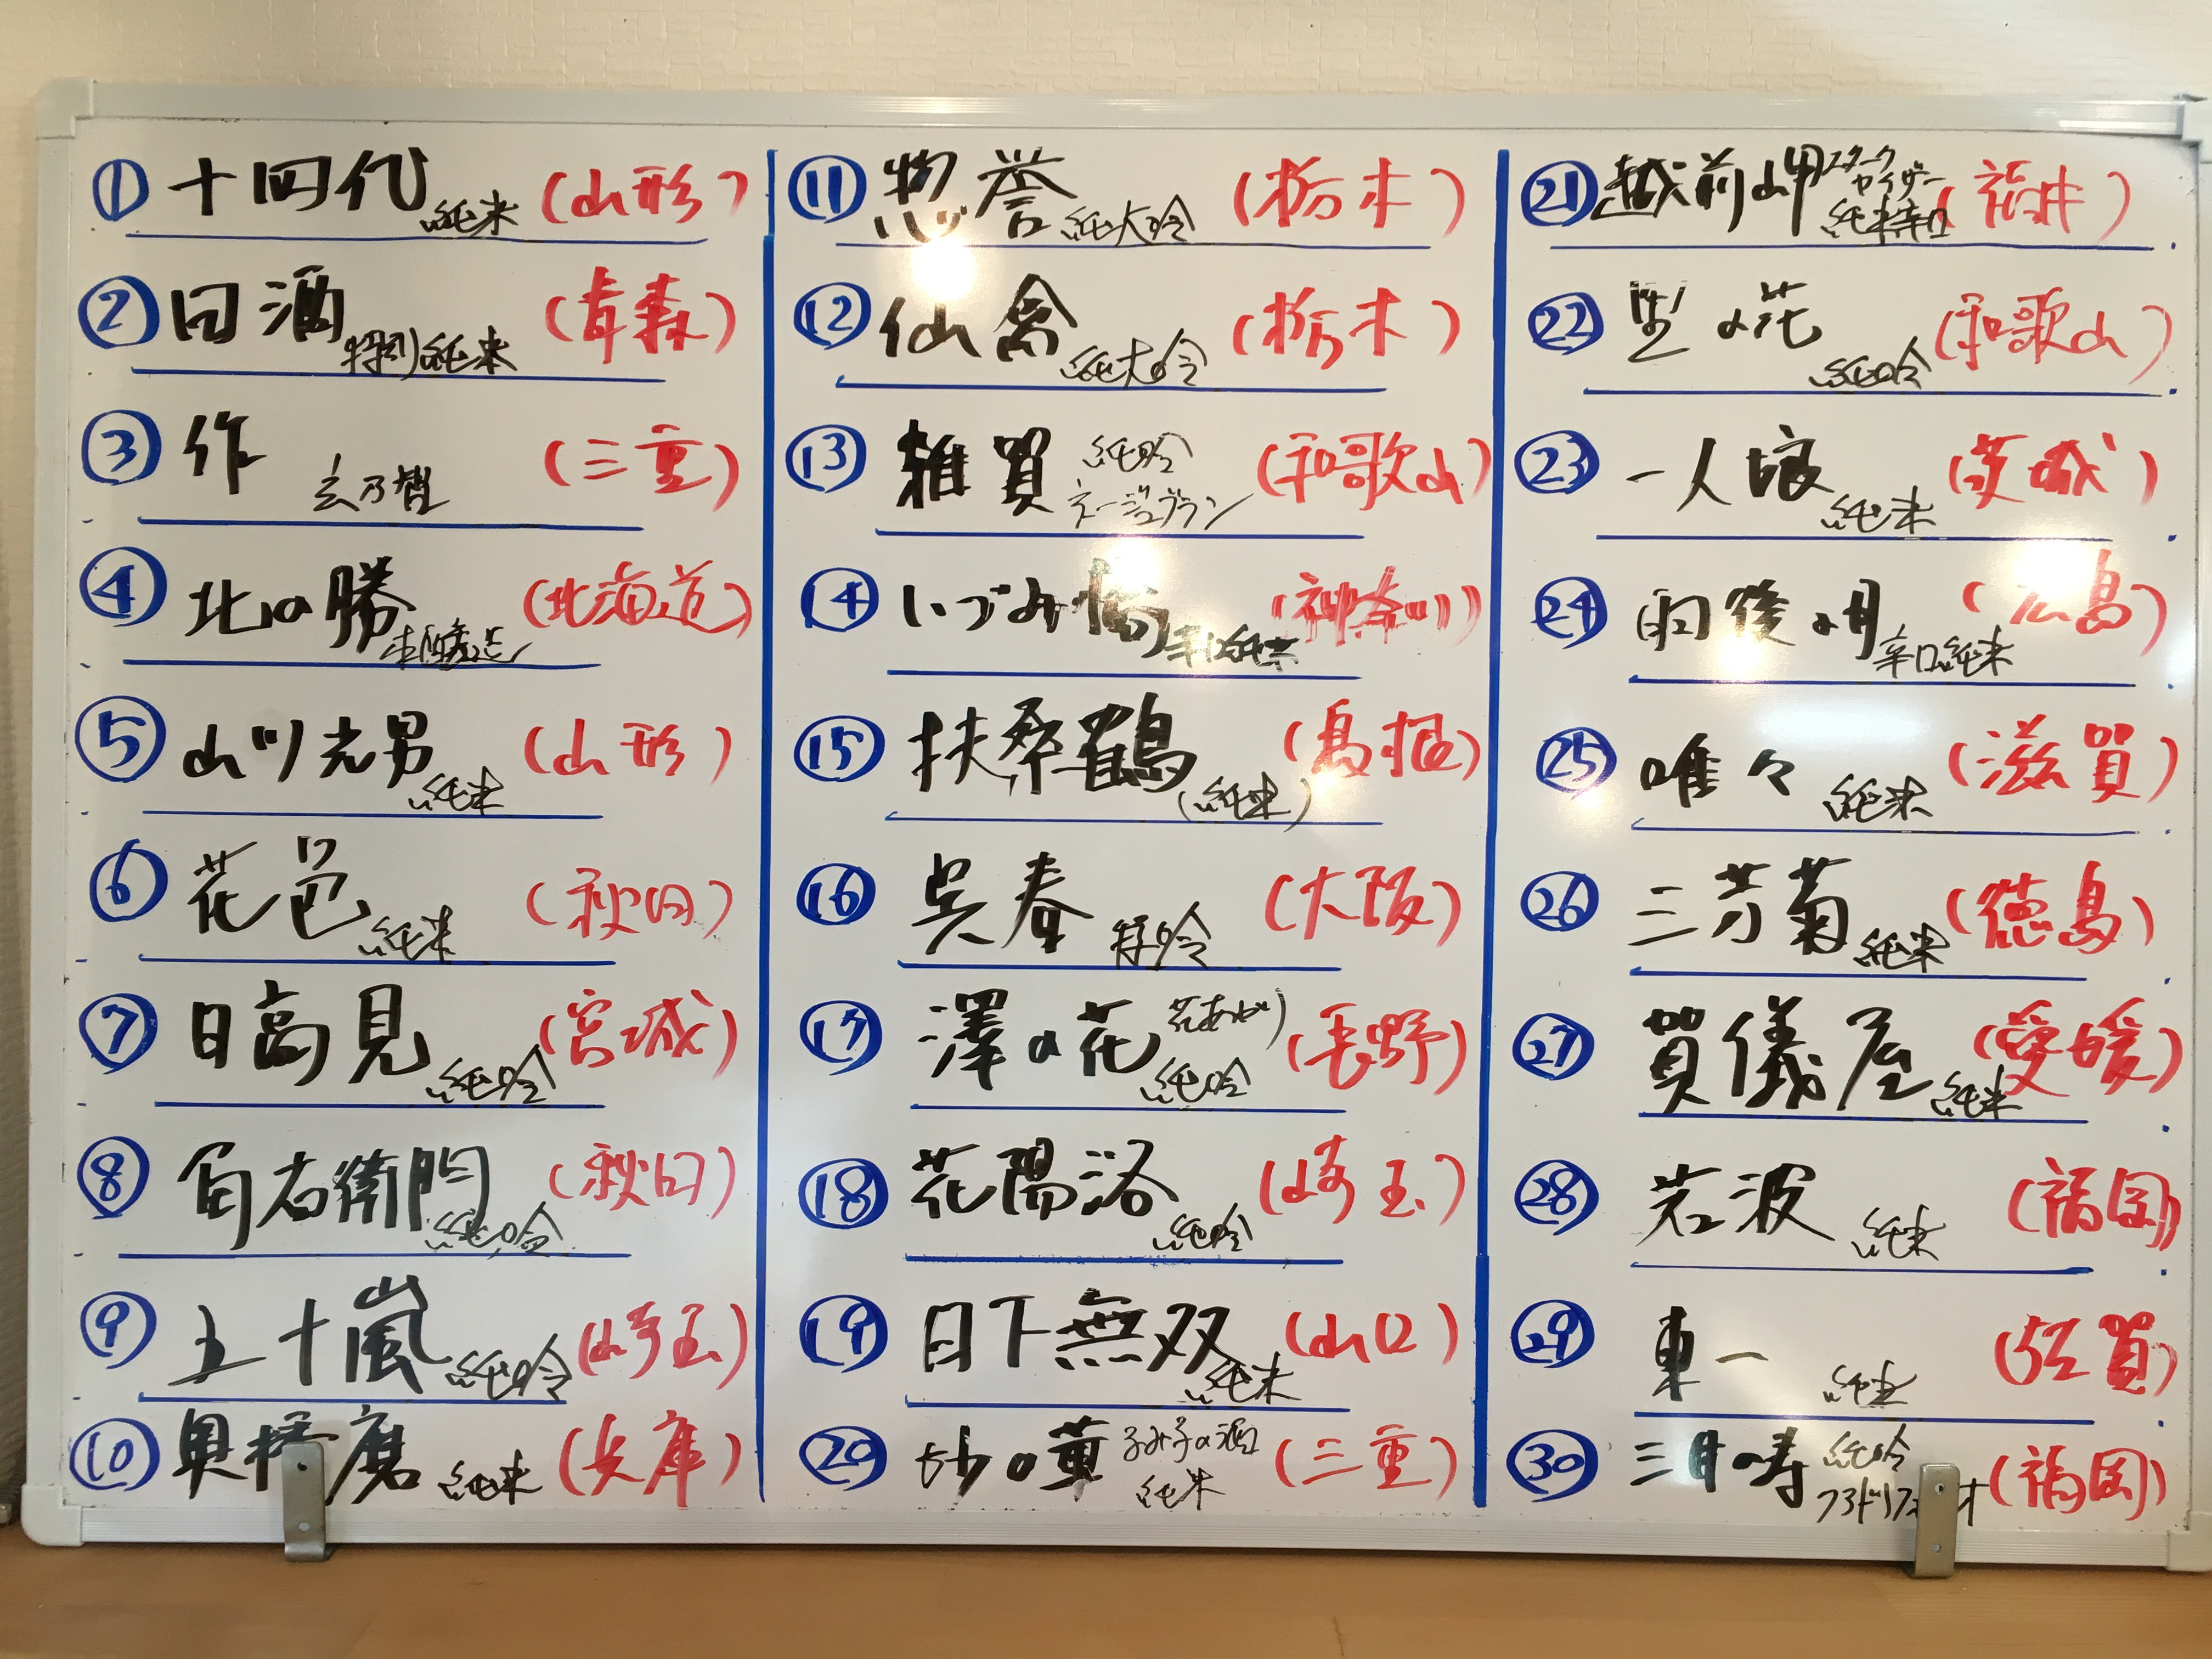 ① 十四代 純米 (山形)
② 田酒 特別純米 (青森)
③ 作 玄乃智 (三重)
④ 北の勝 本醸造 (北海道)
⑤ 山川光男 純米 (山形)
⑥ 花邑 純米 (秋田)
⑦ 日高見 純吟 (宮城)
⑧ 角右衛門 純吟 (秋田)
⑨ 五十嵐 純吟 (埼玉)
⑩ 奥播磨 純米 (兵庫)
⑪ 惣誉 純大吟 (栃木)
⑫ 仙禽 純大吟 (栃木)
⑬ 雑賀 純吟 ネージュブラン (和歌山)
⑭ いづみ橋 辛口純米 (神奈川)
⑮ 扶桑鶴 (純米) (島根)
⑯ 呉春 特吟 (大阪)
⑰ 澤の花 花あかり 純吟 (長野)
⑱ 花陽浴 純吟 (埼玉)
⑲ 日下無双 純米 (山口)
⑳ 妙の華 るみ子の酒 純米 (三重)
㉑ 越前岬 スターク カイザー 純米辛口 (福井)
㉒ 聖の花 純吟 (和歌山)
㉓ 一人娘 純米 (茨城)
㉔ 雨後の月 辛口純米 (広島)
㉕ 唯々 純米 (滋賀)
㉖ 三芳菊 純米 (徳島)
㉗ 賀儀屋 純米 (愛媛)
㉘ 若波 純米 (福岡)
㉙ 東一 純米 (佐賀)
㉚ 三井の寿 純吟 (福岡)